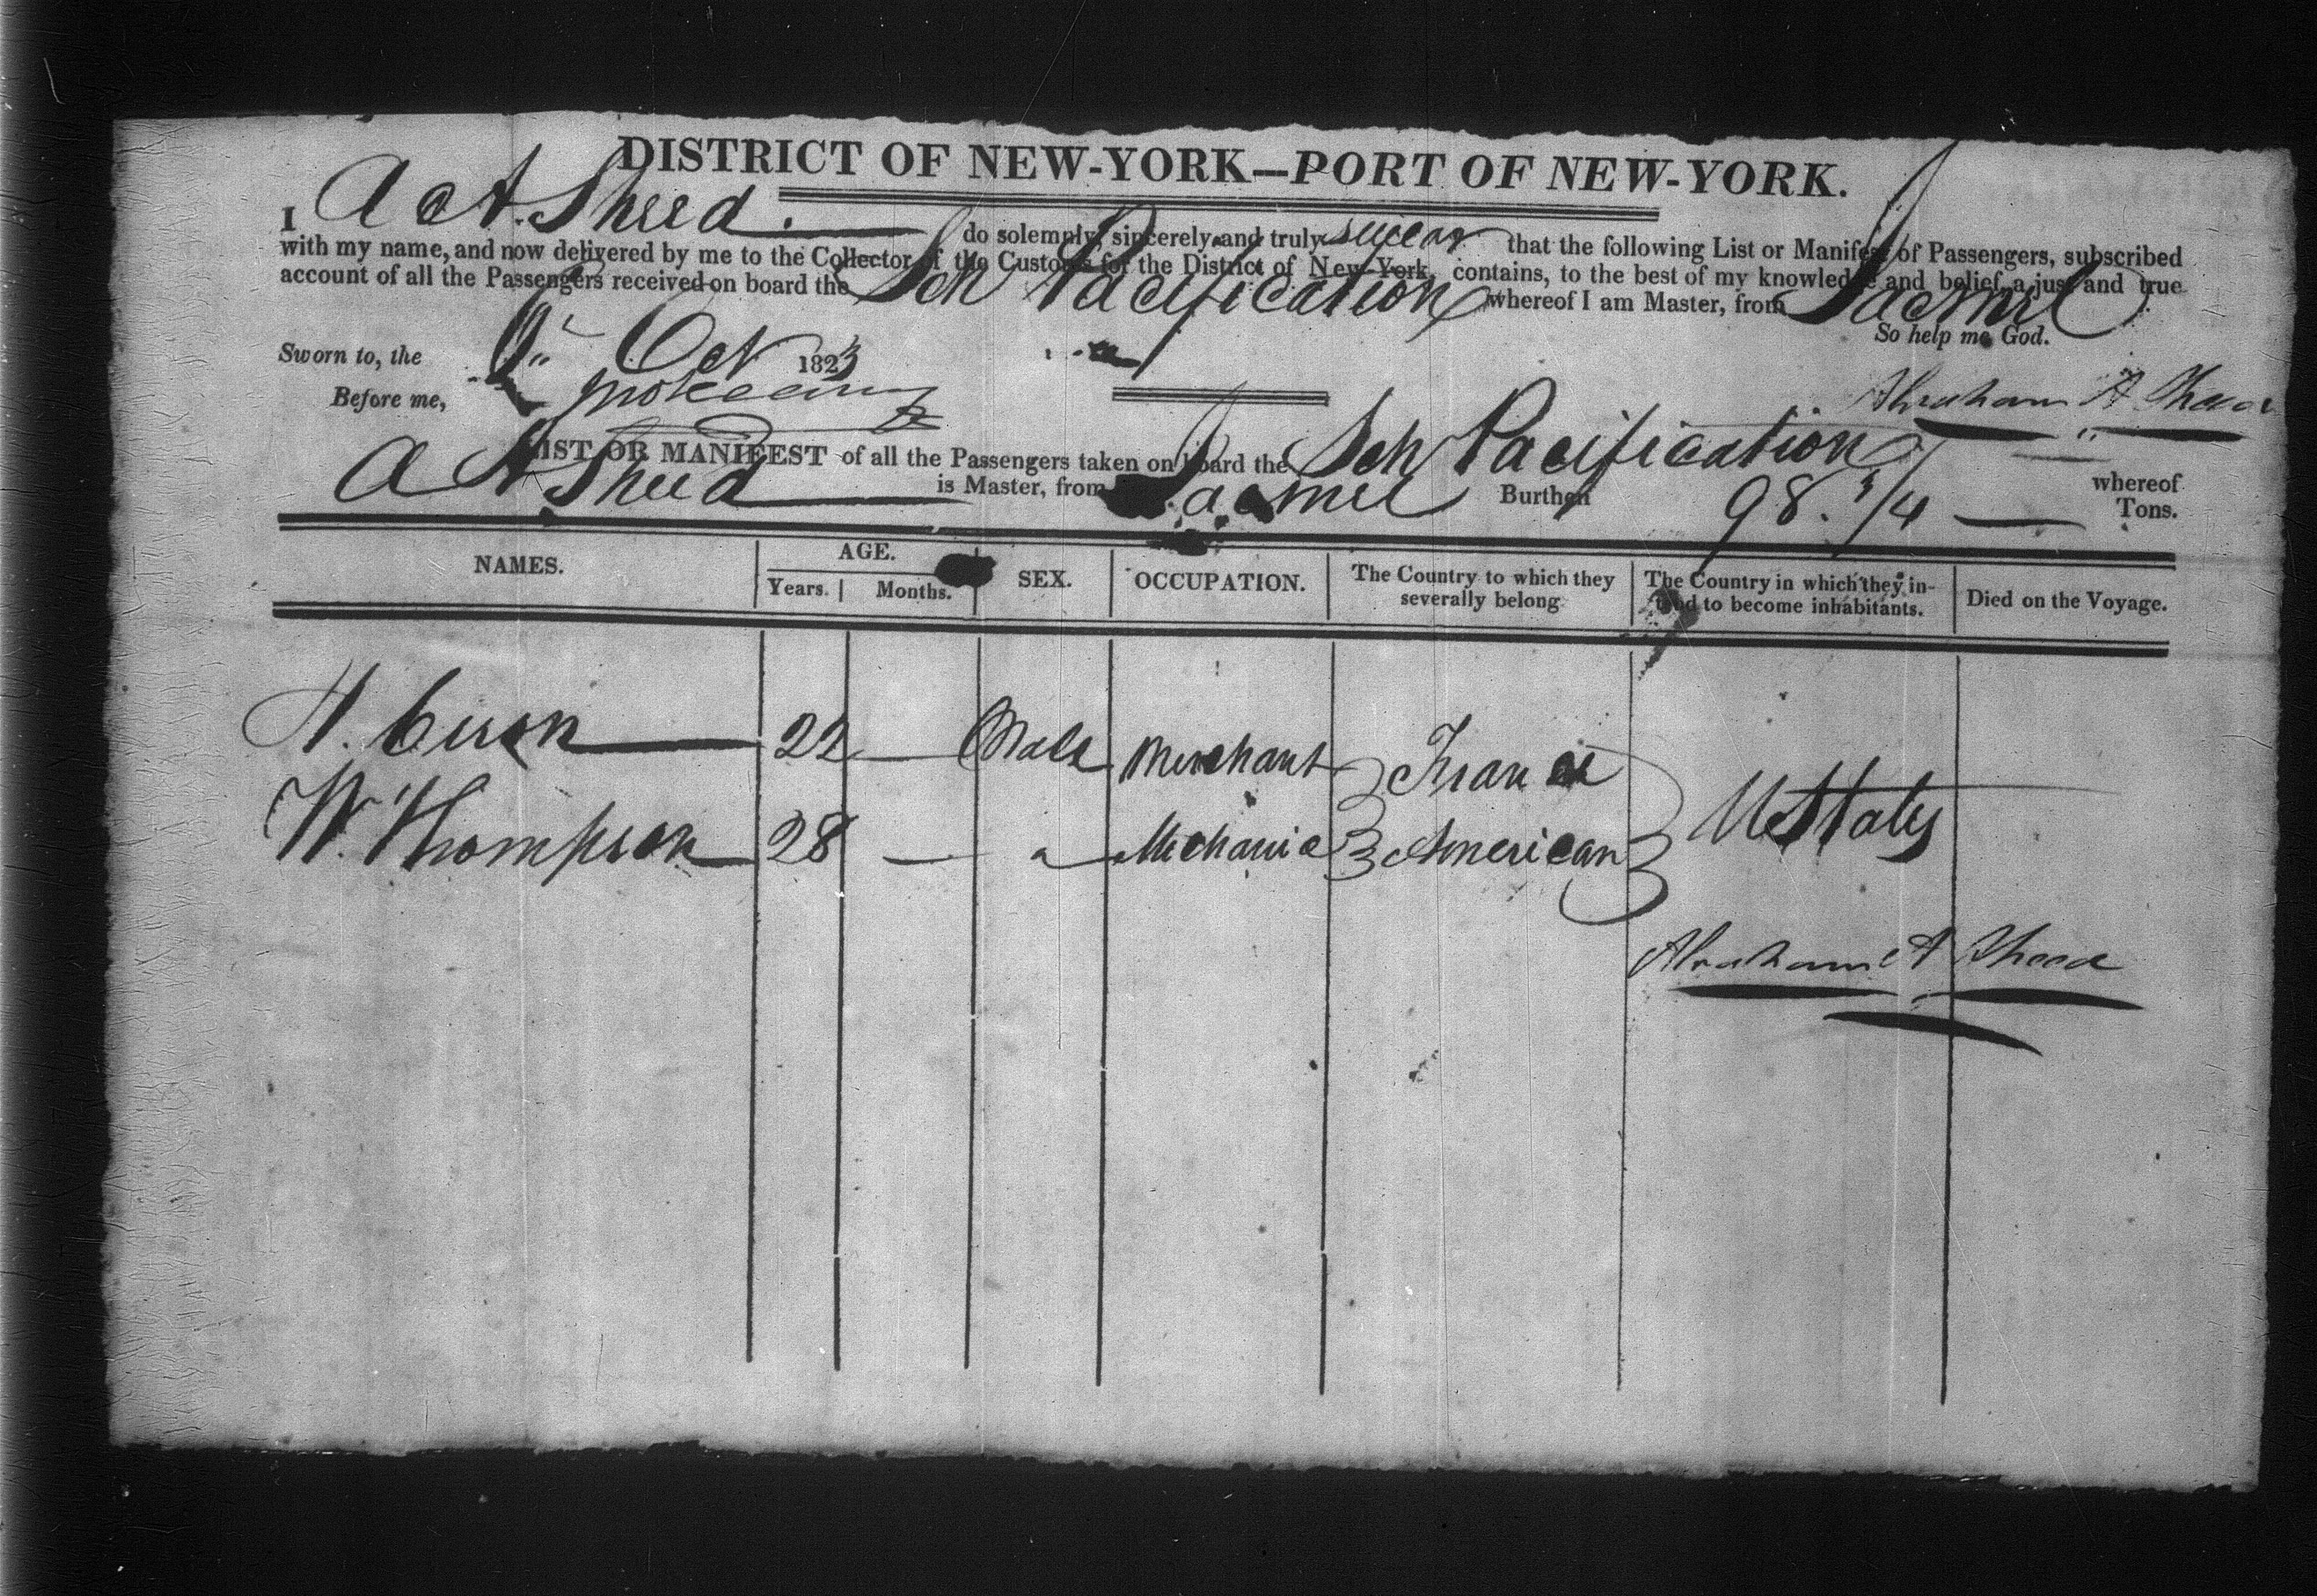 DISTRICT OF NEW-YORK—PORT OF NEW-YORK.
I A A Sheed. do solemnly, sincerely and truly swear that the following List or Manifest of Passengers, subscribed
with my name, and now delivered by me to the Collector of the Customs for the District of New-York, contains, to the best of my knowledge and belief, a just and true
account of all the Passengers received on board the Sch Pacification whereof I am Master, from Jacmel
So help me God.
Sworn to, the Oct 1823
Before me,
Abraham A Sheed
LIST OR MANIFEST of all the Passengers taken on board the Sch Pacification whereof
A A Sheed is Master, from Jacmel Burthen 98. 3/4 Tons.
NAMES. AGE. Years. Months. SEX. OCCUPATION. The Country to which they severally belong The Country in which they intend to become inhabitants. Died on the Voyage.
22 Male Merchant France
W. Thompson 28 — " Mechanic American U States
Abraham A Sheed